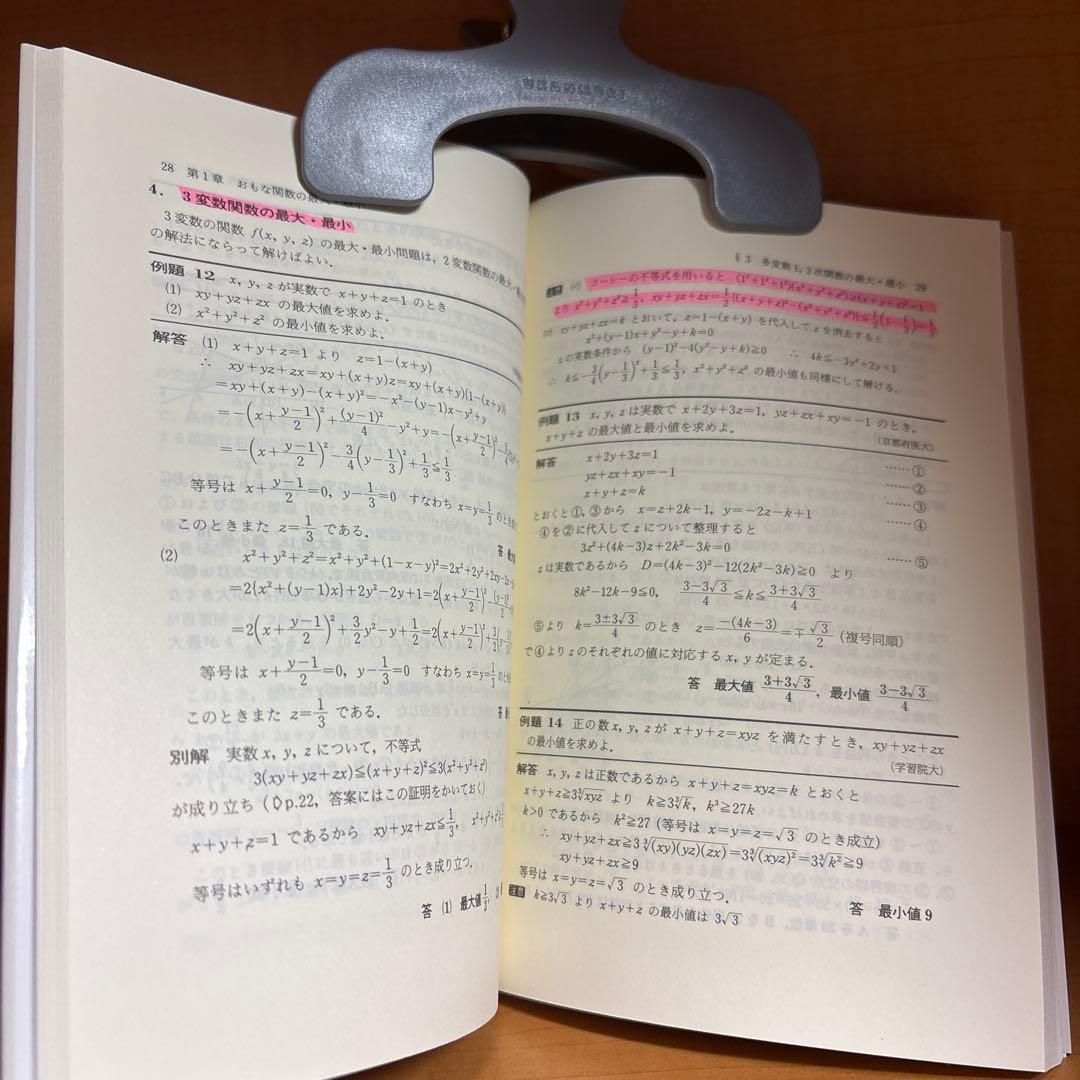 UKANMURI
28 第1章 おもな関数の最大・最小
4. 3変数関数の最大・最小
3変数の関数 f(x, y, z) の最大・最小問題は，2変数関数の最大・
の解法にならって解けばよい．
例題 12 x, y, z が実数で x+y+z=1 のとき
(1) xy+yz+zx の最大値を求めよ．
(2) x²+y²+z² の最小値を求めよ．
解答 (1) x+y+z=1 より z=1-(x+y)
∴ xy+yz+zx=xy+(x+y)z=xy+(x+y){1-(x+y)}
=xy+(x+y)-(x+y)²=-x²-(y-1)x-y²+y
=-(x+(y-1)/2)²+(y-1)²/4-y²+y=-(x+(y-1)/2)²-
=-(x+(y-1)/2)²-3/4(y-1/3)²+1/3≦1/3
等号は x+(y-1)/2=0, y-1/3=0 すなわち x=y=1/3 のとき
このときまた z=1/3 である．
(2) x²+y²+z²=x²+y²+(1-x-y)²=2x²+2y²+2xy-2x-
=2{x²+(y-1)x}+2y²-2y+1=2(x+(y-1)/2)²-
=2(x+(y-1)/2)²+3/2y²-y+1/2=2(x+(y-1)/2)²+3/2
等号は x+(y-1)/2=0, y-1/3=0 すなわち x=y=1/3 のとき
このときまた z=1/3 である．
別解 実数 x, y, z について，不等式
3(xy+yz+zx)≦(x+y+z)²≦3(x²+y²+z²)
が成り立ち (p.22, 答案にはこの証明をかいておく)
x+y+z=1 であるから xy+yz+zx≦1/3, x²+y²+z²
等号はいずれも x=y=z=1/3 のとき成り立つ．
答 (1) 最大値 1/3,
§3 多変数1, 2次関数の最大・最小 29
注意 コーシーの不等式を用いると (1²+1²+1²)(x²+y²+z²)≧(x+y+z)²=1
より x²+y²+z²≧1/3, xy+yz+zx=1/2{(x+y+z)²-(x²+y²+z²)}≦1/2(1-1/3)=1/3
xy+yz+zx=k とおいて，z=1-(x+y) を代入して z を消去すると
x²+(y-1)x+y²-y+k=0
x の実数条件から (y-1)²-4(y²-y+k)≧0 ∴ 4k≦-3y²+2y+1
∴ k≦-3/4(y-1/3)²+1/3≦1/3, x²+y²+z² の最小値も同様にして解ける．
例題 13 x, y, z は実数で x+2y+3z=1, yz+zx+xy=-1 のとき，
x+y+z の最大値と最小値を求めよ．
(京都府医大)
解答 x+2y+3z=1 ……①
yz+zx+xy=-1 ……②
x+y+z=k ……③
とおくと①, ③から x=z+2k-1, y=-2z-k+1 ……④
④を②に代入して z について整理すると
3z²+(4k-3)z+2k²-3k=0 ……⑤
z は実数であるから D=(4k-3)²-12(2k²-3k)≧0 より
8k²-12k-9≦0, (3-3√3)/4≦k≦(3+3√3)/4
⑤より k=(3±3√3)/4 のとき z=-(4k-3)/6=∓√3/2 (複号同順)
で④より z のそれぞれの値に対応する x, y が定まる．
答 最大値 (3+3√3)/4, 最小値 (3-3√3)/4
例題 14 正の数 x, y, z が x+y+z=xyz を満たすとき，xy+yz+zx
の最小値を求めよ．
(学習院大)
解答 x, y, z は正数であるから x+y+z=xyz=k とおくと
x+y+z≧3∛xyz より k≧3∛k, k³≧27k
k>0 であるから k²≧27 (等号は x=y=z=√3 のとき成立)
∴ xy+yz+zx≧3∛(xy)(yz)(zx)=3∛(xyz)²=3∛k²≧9
xy+yz+zx≧9
等号は x=y=z=√3 のとき成り立つ．
答 最小値 9
注意 k≧3√3 より x+y+z の最小値は 3√3